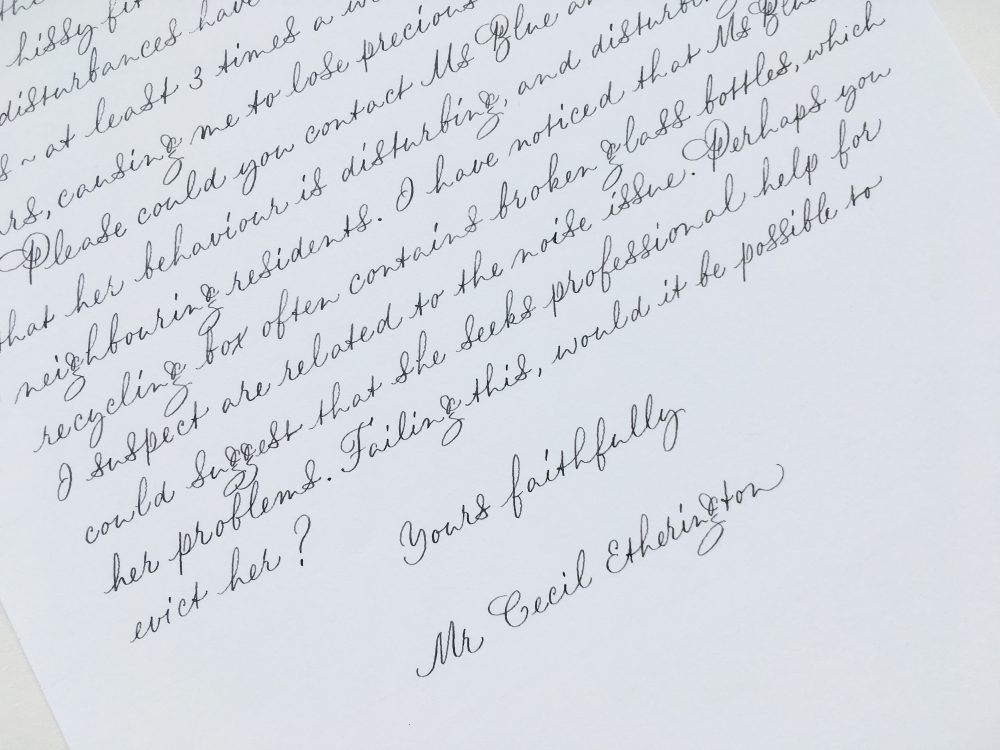 the
hissy fit
disturbances have
s ~ at least 3 times a w
rs, causing me to lose precious
Please could you contact Ms Blue an
that her behaviour is disturbing, and disturbin
neighbouring residents. I have noticed that Ms Blue
recycling box often contains broken glass bottles, which
I suspect are related to the noise issue. Perhaps you
could suggest that she seeks professional help for
her problems. Failing this, would it be possible to
evict her?
Yours faithfully
Mr Cecil Etherington